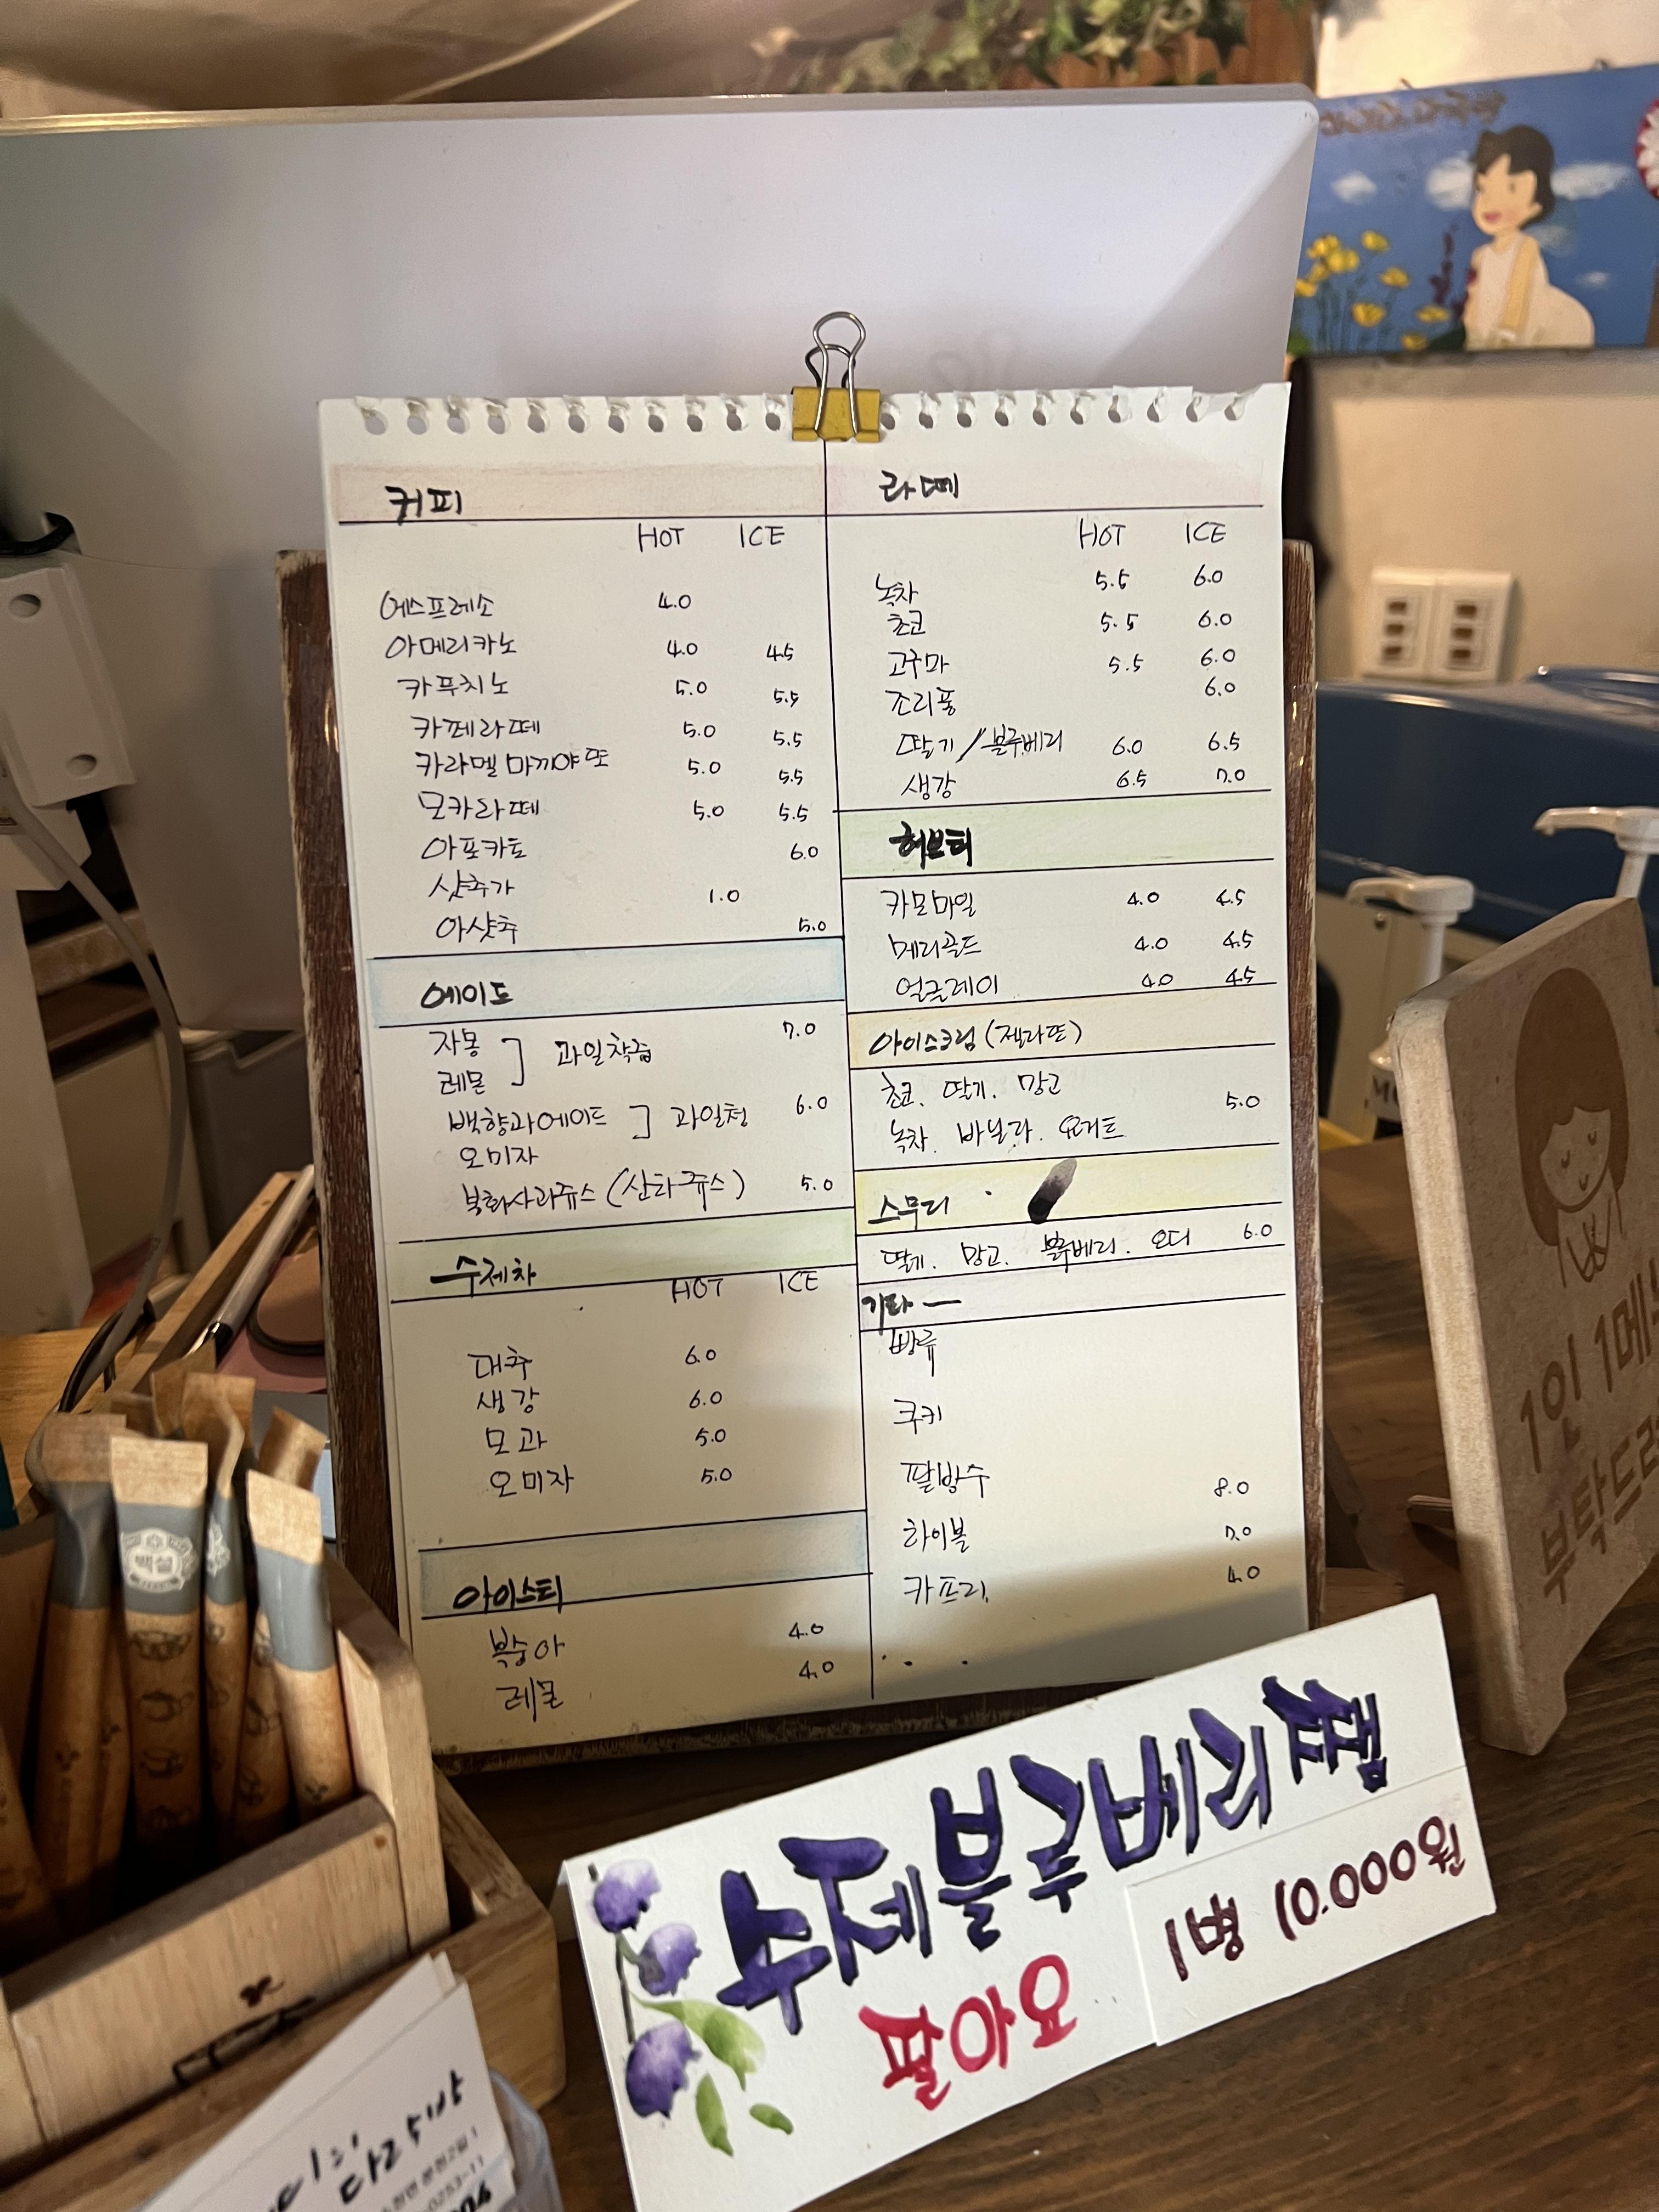 커피
HOT ICE
에스프레소 4.0
아메리카노 4.0 4.5
카푸치노 5.0 5.5
카페라떼 5.0 5.5
카라멜 마끼야또 5.0 5.5
모카라떼 5.0 5.5
아포카토 6.0
샷추가 1.0
아샷추 5.0
에이드
자몽 ] 과일착즙 7.0
레몬
백향과에이드 ] 과일청 6.0
오미자
사과쥬스 5.0
수제차
HOT ICE
대추 6.0
생강 6.0
모과 5.0
오미자 5.0
아이스티
복숭아 4.0
레몬 4.0
라떼
HOT ICE
녹차 5.5 6.0
초코 5.5 6.0
고구마 5.5 6.0
조리퐁 6.0
딸기/블루베리 6.0 6.5
생강 6.5 7.0
허브티
카모마일 4.0 4.5
메리골드 4.0 4.5
얼그레이 4.0 4.5
아이스크림 (젤라또)
초코. 딸기. 망고
녹차. 바닐라. 요거트 5.0
스무디
딸기. 망고. 블루베리. 오디 6.0
기타 —
빵류
쿠키
팥빙수 8.0
하이볼 7.0
카프리. 4.0
1인 1메
부탁드
수제블루베리쨈
팔아요
1병 10.000원
백설
다락방